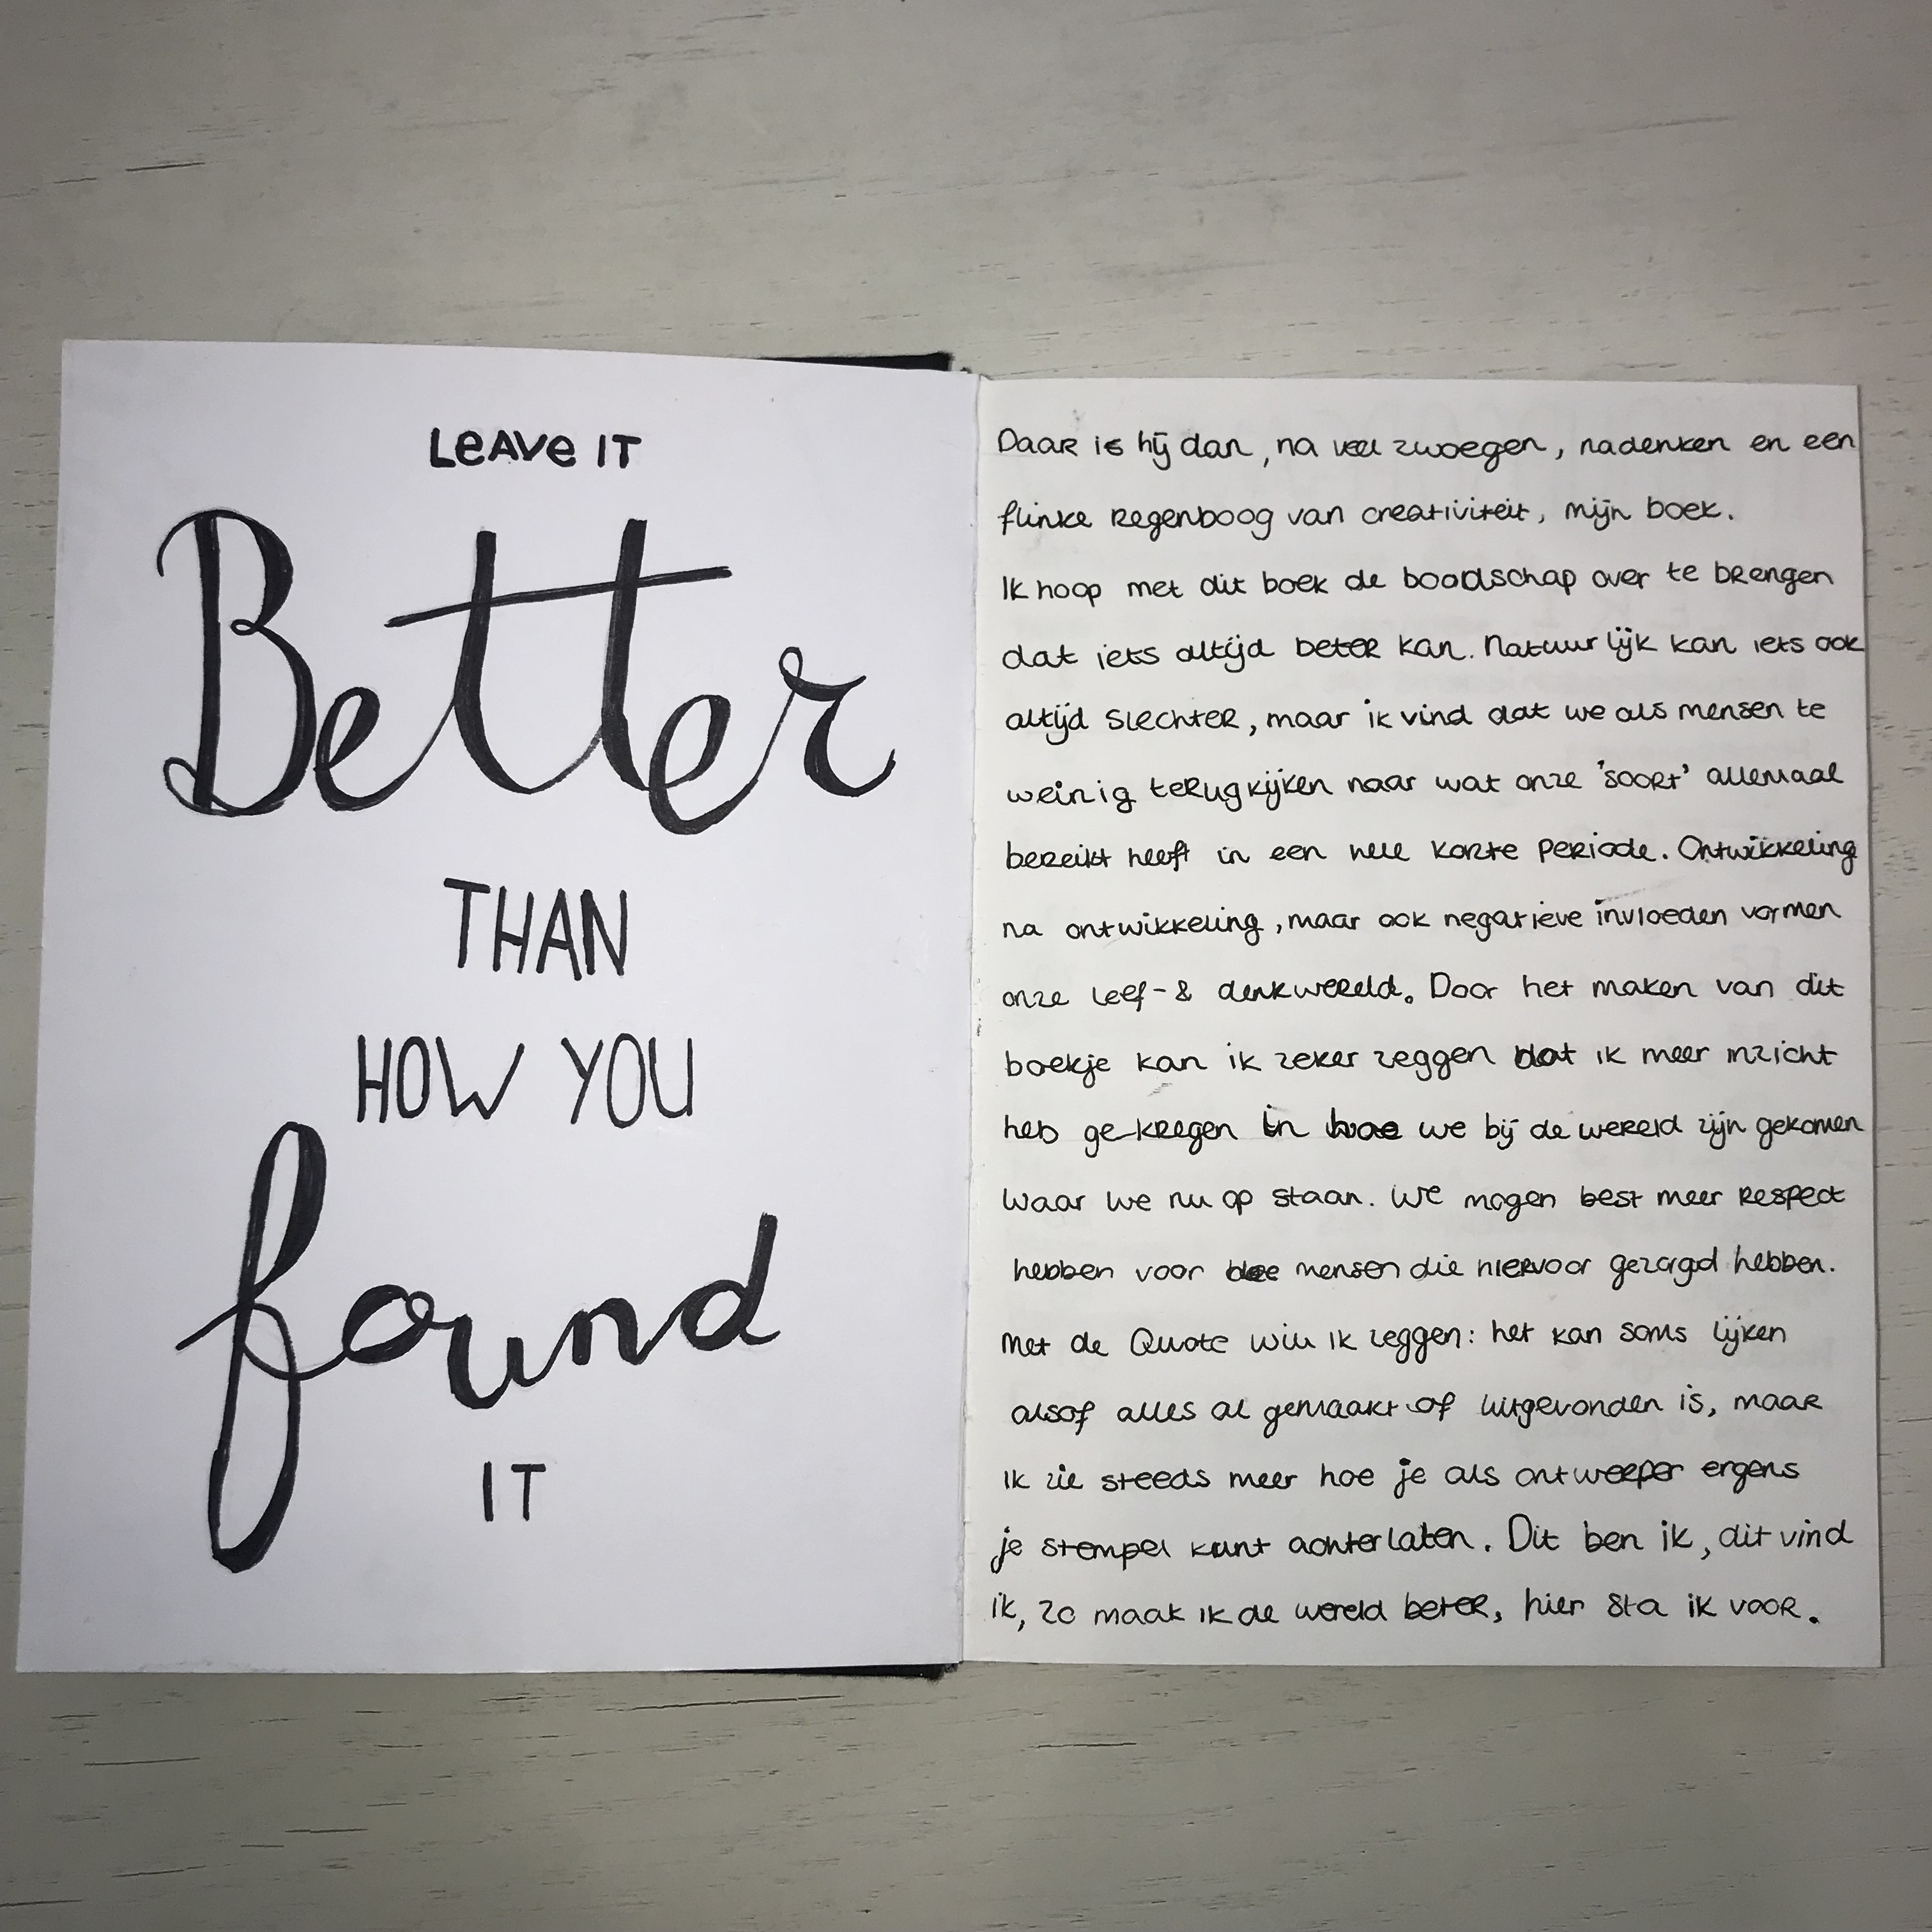 LeAVe IT
Better
THAN
HOW YOU
found
IT
Daar is hij dan, na veel zwoegen, nadenken en een
flinke regenboog van creativiteit, mijn boek.
Ik hoop met dit boek de boodschap over te brengen
dat iets altijd beter kan. Natuurlijk kan iets ook
altijd slechter, maar ik vind dat we als mensen te
weinig terugkijken naar wat onze 'soort' allemaal
bereikt heeft in een hele korte periode. Ontwikkeling
na ontwikkeling, maar ook negatieve invloeden vormen
onze leef- & denkwereld. Door het maken van dit
boekje kan ik zeker zeggen dat ik meer inzicht
heb gekregen in hoe we bij de wereld zijn gekomen
waar we nu op staan. We mogen best meer respect
hebben voor de mensen die hiervoor gezorgd hebben.
Met de Quote wil ik zeggen: het kan soms lijken
alsof alles al gemaakt of uitgevonden is, maar
ik zie steeds meer hoe je als ontwerper ergens
je stempel kunt achterlaten. Dit ben ik, dit vind
ik, zo maak ik de wereld beter, hier sta ik voor.